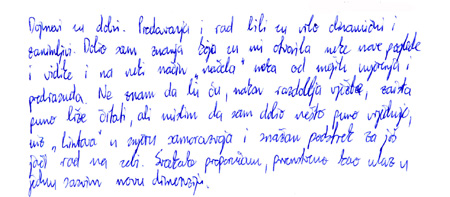 Dojmovi su dobri. Predavanja i rad bili su vrlo dinamični i
zanimljivi. Dobio sam znanja koja su mi otvorila neke nove poglede
i vidike i na neki način „načela“ neka od mojih uvjerenja i
predrasuda. Ne znam da li ću, nakon razdoblja vježbe, zaista
puno brže čitati, ali mislim da sam dobio nešto puno vrijednije,
niz „lintova“ u smjeru samorazvoja i snažan podstrek za još
jači rad na sebi. Svakako preporučam, prvenstveno kao ulaz u
jednu sasvim novu dimenziju.